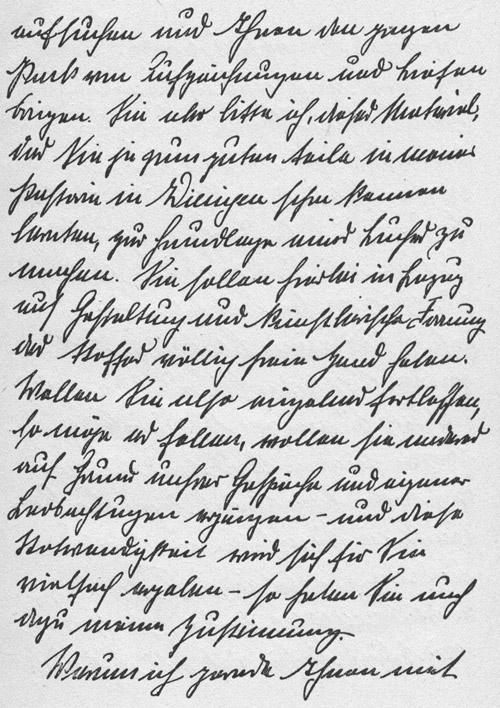 aufsuchen und Ihnen den ganzen
Pack von Aufzeichnungen und Briefen
bringen. Sie aber bitte ich, dieses Material,
das Sie ja zum guten Teile in meiner
Pastorie in Wieringen schon kennen
lernten, zur Grundlage eines Buches zu
machen. Sie sollen hierbei in Bezug
auf Gestaltung und künstlerische Formung
des Stoffes völlig freie Hand haben.
Wollen Sie also einzelnes fortlassen,
so möge es fallen, wollen sie anderes
auf Grund unsrer Gespräche und eigener
Beobachtungen ergänzen – und diese
Notwendigkeit wird sich für Sie
vielfach ergeben – so haben Sie auch
dazu meine Zustimmung. –
Warum ich gerade Ihnen mit